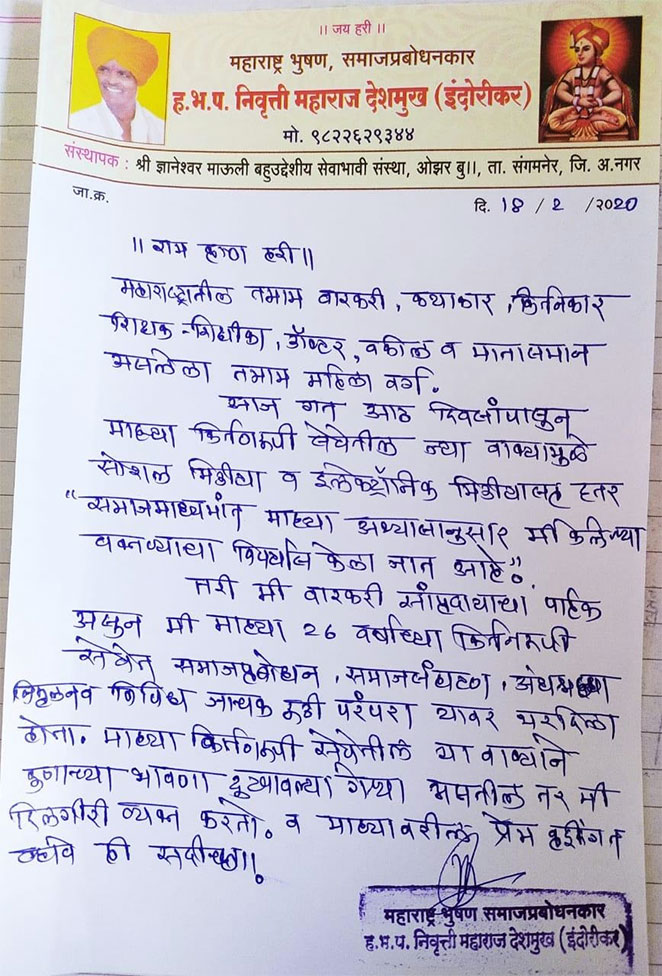 ॥ जय हरी ॥
महाराष्ट्र भुषण, समाजप्रबोधनकार
ह.भ.प. निवृत्ती महाराज देशमुख (इंदोरीकर)
मो. ९८२२६२९३४४
संस्थापक : श्री ज्ञानेश्वर माऊली बहुउद्देशीय सेवाभावी संस्था, ओझर बु॥, ता. संगमनेर, जि. अ.नगर
जा.क्र.
दि. 18 / 2 /२०20
॥ राम कृष्ण हरी ॥
महाराष्ट्रातील तमाम वारकरी, कथाकार, किर्तनकार
शिक्षक - शिक्षीका, डॉक्टर, वकील व मातासमान
असलेला तमाम महिला वर्ग.
आज गत आठ दिवसांपासून
माझ्या किर्तनरूपी सेवेतील ज्या वाक्यामुळे
सोशल मिडीया व इलेक्ट्रॉनिक मिडीयासह इतर
"समाजमाध्यमांत माझ्या अभ्यासानुसार मी केलेल्या
वक्तव्याचा विपर्यास केला जात आहे".
तरी मी वारकरी सांप्रदायाचा पाईक
असुन मी माझ्या 26 वर्षाच्या किर्तनरूपी
सेवेत समाजप्रबोधन, समाजसंघटन, अंधश्रध्दा
निमुर्लन व विविध जाचक रूढी परंपरा यावर भर दिला
होता. माझ्या किर्तनरूपी सेवेतील या वाक्याने
कुणाच्या भावणा दुःखावल्या गेल्या असतील तर मी
दिलगीरी व्यक्त करतो. व माझ्यावरील प्रेम वृद्धिंगत
व्हावे ही सदीच्छा॥.
महाराष्ट्र भुषण समाजप्रबोधनकार
ह.भ.प. निवृत्ती महाराज देशमुख (इंदोरीकर)